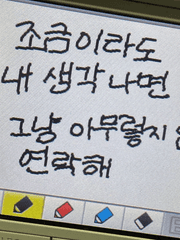 조금이라도
내 생각 나면
그냥 아무렇지
연락해